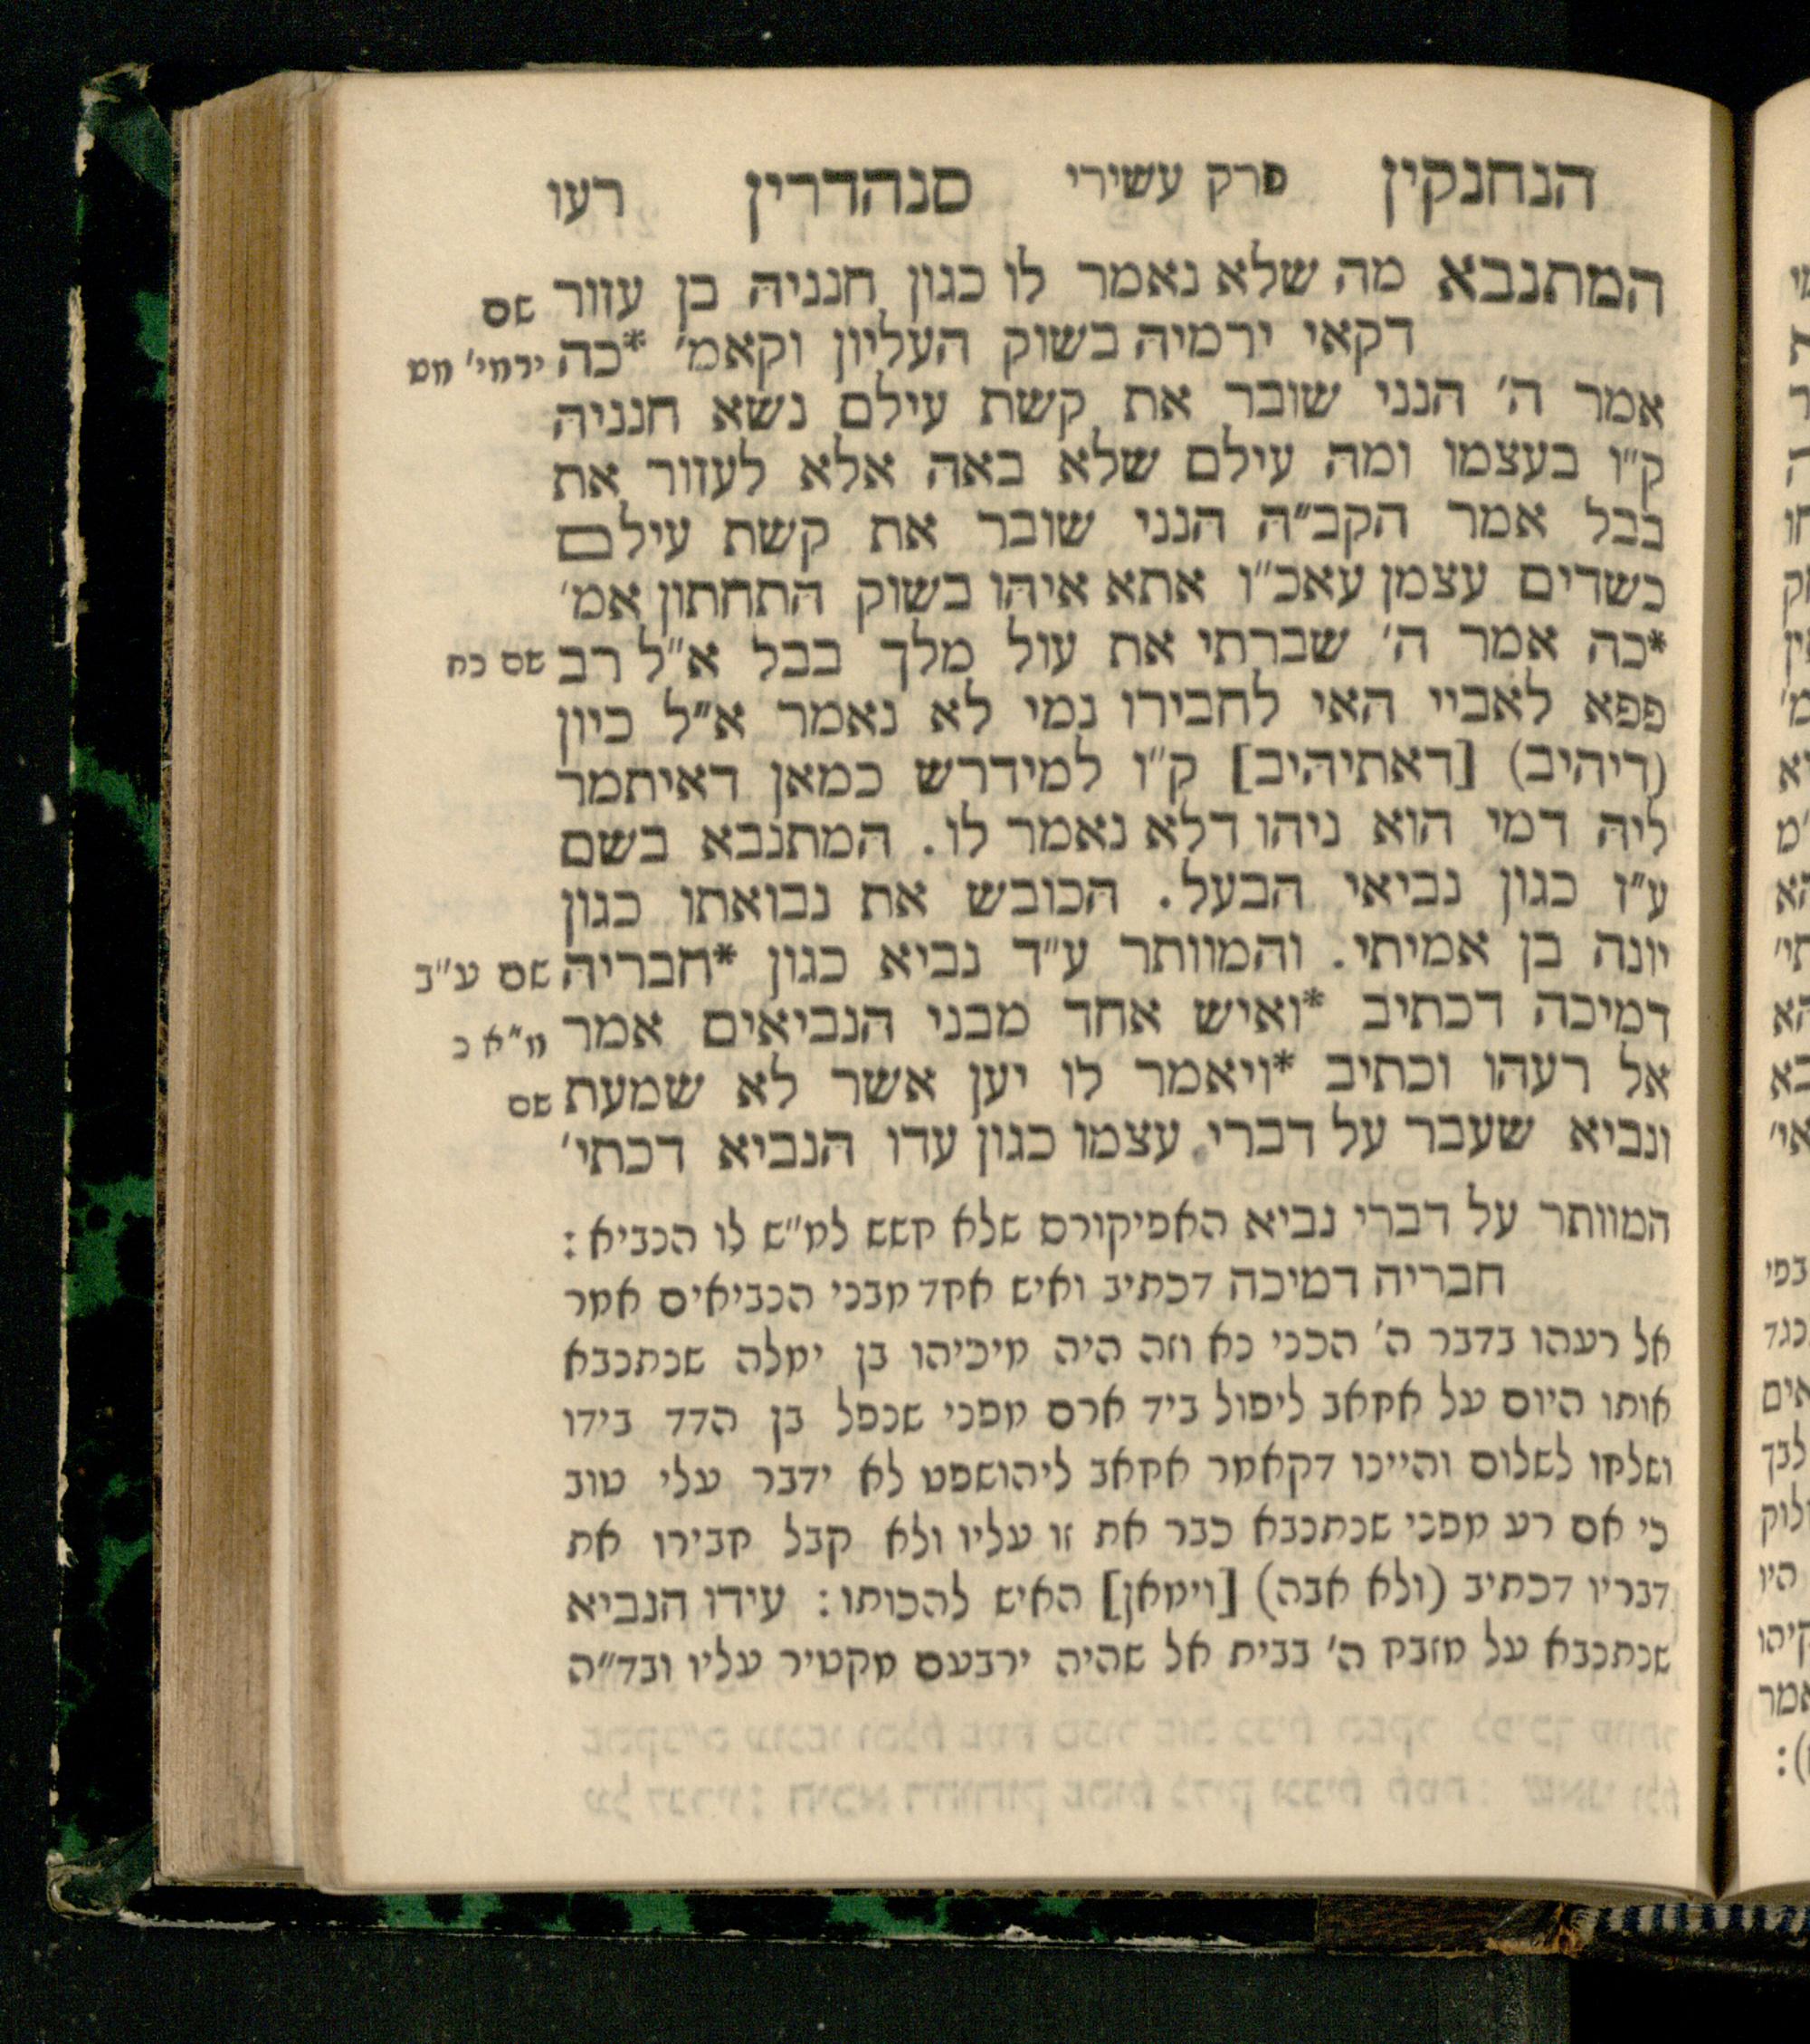 הנחנקין פרק עשירי סנהדרין רעו
המתנבא מה שלא נאמר לו כגון חנניה בן עזור שם
דקאי ירמיה בשוק העליון וקאמ׳ *כה ירמי׳ מט
אמר ה׳ הנני שובר את קשת עילם נשא חנניה
ק״ו בעצמו ומה עילם שלא באה אלא לעזור את
בבל אמר הקב״ה הנני שובר את קשת עילם
כשדים עצמן עאכ״ו אתא איהו בשוק התחתון אמ׳
*כה אמר ה׳ שברתי את עול מלך בבל א״ל רב שם כח
פפא לאביי האי לחבירו נמי לא נאמר א״ל כיון
(דיהיב) [דאתיהיב] ק״ו למידרש כמאן דאיתמר
ליה דמי הוא ניהו דלא נאמר לו. המתנבא בשם
ע״ז כגון נביאי הבעל. הכובש את נבואתו כגון
יונה בן אמיתי. והמוותר ע״ד נביא כגון *חבריה שם ע״ב
דמיכה דכתיב *ואיש אחד מבני הנביאים אמר מ״א כ
אל רעהו וכתיב *ויאמר לו יען אשר לא שמעת שם
ונביא שעבר על דברי עצמו כגון עדו הנביא דכתי׳
המוותר על דברי נביא האפיקורס שלא חשש למ״ש לו הנביא :
חבריה דמיכה דכתיב ואיש אחד מבני הנביאים אמר
אל רעהו בדבר ה׳ הכני נא וזה היה מיכיהו בן ימלה שנתנבא
אותו היום על אחאב ליפול ביד ארם מפני שנפל בן הדד בידו
ושלחו לשלום והיינו דקאמר אחאב ליהושפט לא ידבר עלי טוב
כי אם רע מפני שנתנבא כבר את זו עליו ולא קבל חבירו את
דבריו דכתיב (ולא אבה) [וימאן] האיש להכותו : עידו הנביא
שנתנבא על מזבח ה׳ בבית אל שהיה ירבעם מקטיר עליו ובד״ה